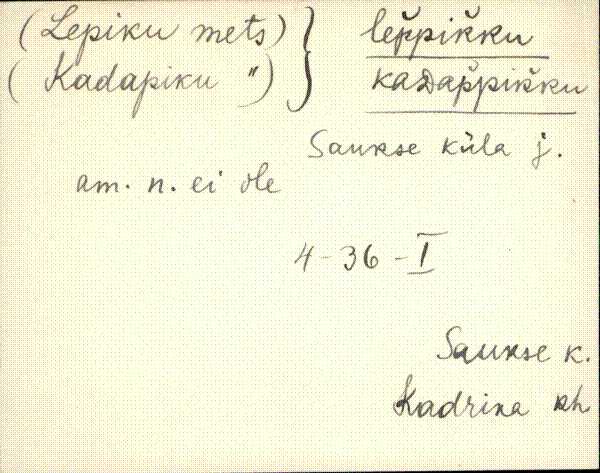 (Lepiku mets) } lep̌pik̆ku
(Kadapiku ") } kaDap̌pik̆ku
Saukse küla j.
am. n. ei ole
4-36-I
Saukse k.
Kadrina kh